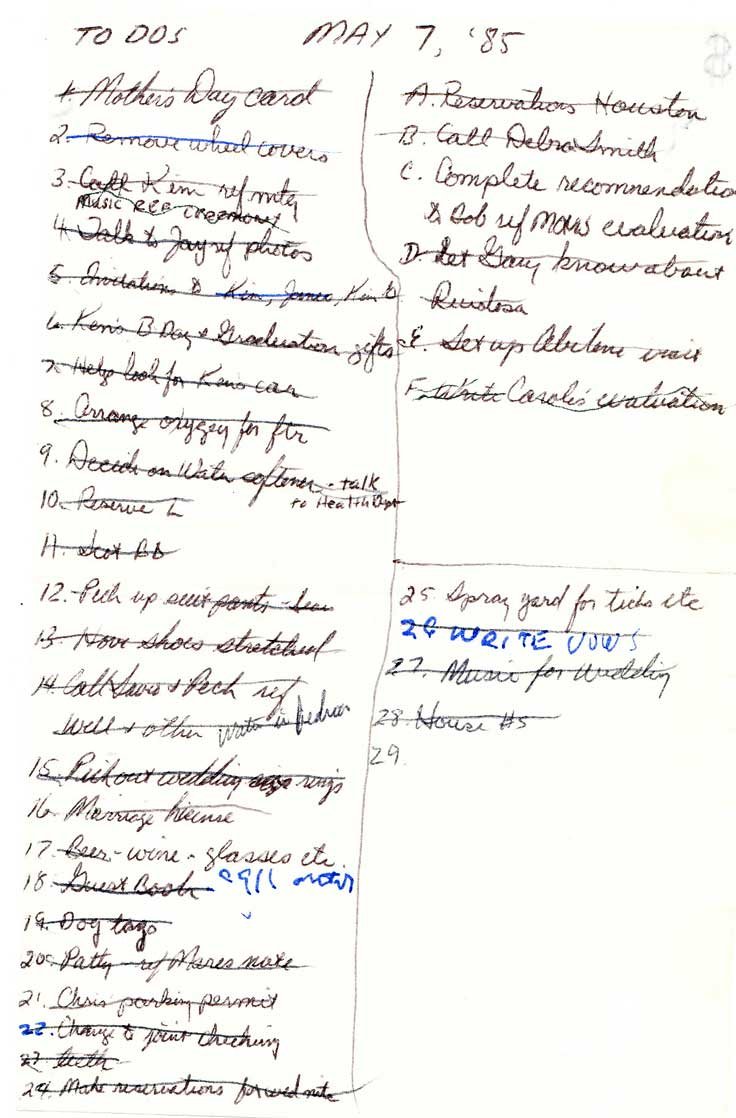 TO DOS MAY 7, '85
1. Mother's Day card
2. Remove wheel covers
3. Call Kim ref mtg
MUSIC REF CEREMONEY
4. Talk to Jay ref photos
5. Invitations to Kim, James, Kim B
6. Ken's B Day & Graduation gifts
7. Help look for Ken's car
8. Arrange oxygen for
9. Decide on Water softener - talk
to Health Dept
10. Reserve L
11.
12. Pick up suit pants -
13. Have shoes stretched
14. Call & Pech ref
well & other water in bedroom
15. Pick out wedding rings
16. Marriage license
17. Beer - wine - glasses etc.
18. Guest Book call
19. Dog tags
20. Patty ref Mares
21. Chris parking permit
22. Change to joint checking
23. teeth
24. Make reservations for wed nite
A. Reservations Houston
B. Call Debra Smith
C. Complete recommendatio
& Bob ref MOM'S evaluation
D. Let Gary know about
Ruidosa
E. Set up Abilene visit
F. Write Carole's evaluation
25. Spray yard for ticks etc
26 WRITE VOWS
27. Music for Wedding
28. House #s
29.